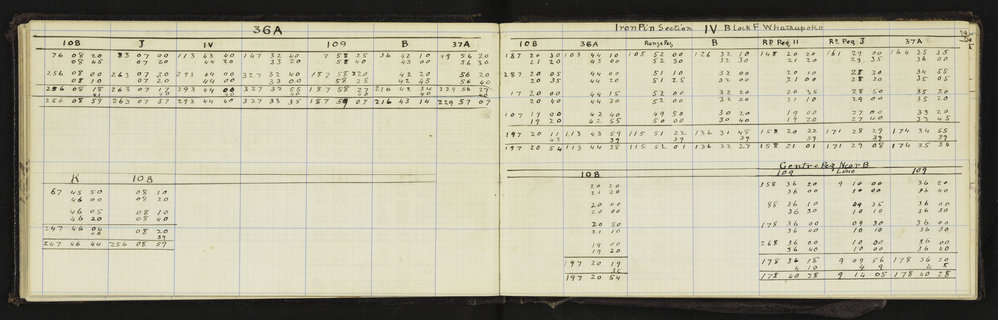 36A
10B J IV 109 B 37A
76 08 20 83 07 00 113 43 40 147 32 40 7 58 25 36 42 10 49 56 20
08 45 07 20 44 20 33 20 58 40 43 00 56 30
256 08 00 263 07 30 293 44 00 327 32 40 187 58 20 42 20 56 20
08 10 07 20 44 00 33 00 58 25 42 45 56 40
256 08 18 263 07 17 293 44 00 327 32 55 187 58 27 216 42 34 229 56 27
40 40 40 40 40 40
256 08 59 263 07 57 293 44 40 327 33 35 187 59 07 216 43 14 229 57 07
K 10B
67 45 50 08 10
46 00 08 20
46 05 08 10
46 20 08 40
247 46 04 08 20
40 39
247 46 44 256 08 59
Iron Pin Section IV Block F Whataupoko
10B 36A Range Peg B RP Peg 11 Rp Peg J 37A
187 20 30 103 44 10 105 52 00 126 32 10 148 20 20 161 29 00 164 35 35
21 20 45 00 52 30 33 10 21 20 29 35 36 00
287 20 05 44 00 51 10 32 00 20 10 28 30 34 55
20 35 44 20 51 25 32 00 21 00 28 20 35 05
17 20 00 44 15 52 00 32 20 20 35 28 50 35 20
20 40 44 30 52 00 32 20 21 10 29 00 35 20
107 19 00 42 40 49 50 30 20 19 00 27 00 33 20
19 20 42 55 50 00 30 40 19 20 27 40 33 45
197 20 11 113 43 59 115 51 22 136 31 48 158 20 22 171 28 29 174 34 55
43 39 39 39 39 39 39
197 20 54 113 44 38 115 52 01 136 32 27 158 21 01 171 29 08 174 35 34
10B
20 20
21 20
20 00
20 00
20 50
21 10
19 00
19 20
197 20 19
35
197 20 54
Centre Peg Near B
109 Line 109
358 36 20 9 10 00 36 20
36 00 10 00 36 40
88 36 10 09 35 36 00
36 30 10 10 36 30
178 36 00 09 30 36 00
36 40 10 10 36 30
268 36 00 10 00 36 00
36 40 10 00 36 40
178 36 18 9 09 56 178 36 20
4 10 4 9 4 8
178 40 28 9 14 05 178 40 28